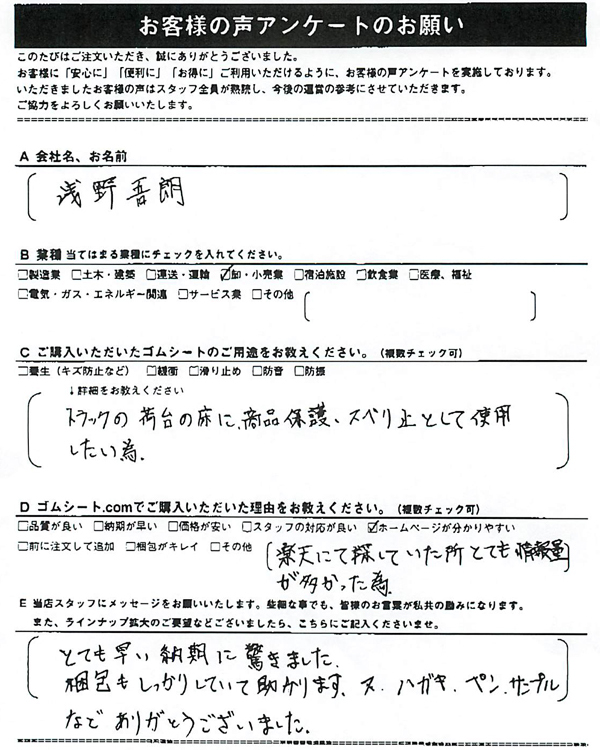 お客様の声アンケートのお願い
このたびはご注文いただき、誠にありがとうございました。
お客様に「安心に」「便利に」「お得に」ご利用いただけるように、お客様の声アンケートを実施しております。
いただきましたお客様の声はスタッフ全員が熟読し、今後の運営の参考にさせていただきます。
ご協力をよろしくお願いいたします。
A 会社名、お名前
浅野吾朗
B 業種 当てはまる業種にチェックを入れてください。
□製造業 □土木・建築 □運送・運輸 ☑卸・小売業 □宿泊施設 □飲食業 □医療、福祉
□電気・ガス・エネルギー関連 □サービス業 □その他
C ご購入いただいたゴムシートのご用途をお教えください。(複数チェック可)
□養生(キズ防止など) □緩衝 □滑り止め □防音 □防振
↓詳細をお教えください
トラックの荷台の床に、商品保護、スベリ止として使用
したい為.
D ゴムシート.comでご購入いただいた理由をお教えください。(複数チェック可)
□品質が良い □納期が早い □価格が安い □スタッフの対応が良い ☑ホームページが分かりやすい
□前に注文して追加 □梱包がキレイ □その他
楽天にて探していた所とても情報量
が多かった為.
E 当店スタッフにメッセージをお願いいたします。些細な事でも、皆様のお言葉が私共の励みになります。
また、ラインナップ拡大のご要望などございましたら、こちらにご記入くださいませ。
とても早い納期に驚きました.
梱包もしっかりしていて助かります、又、ハガキ、ペン、サンプル
など ありがとうございました.